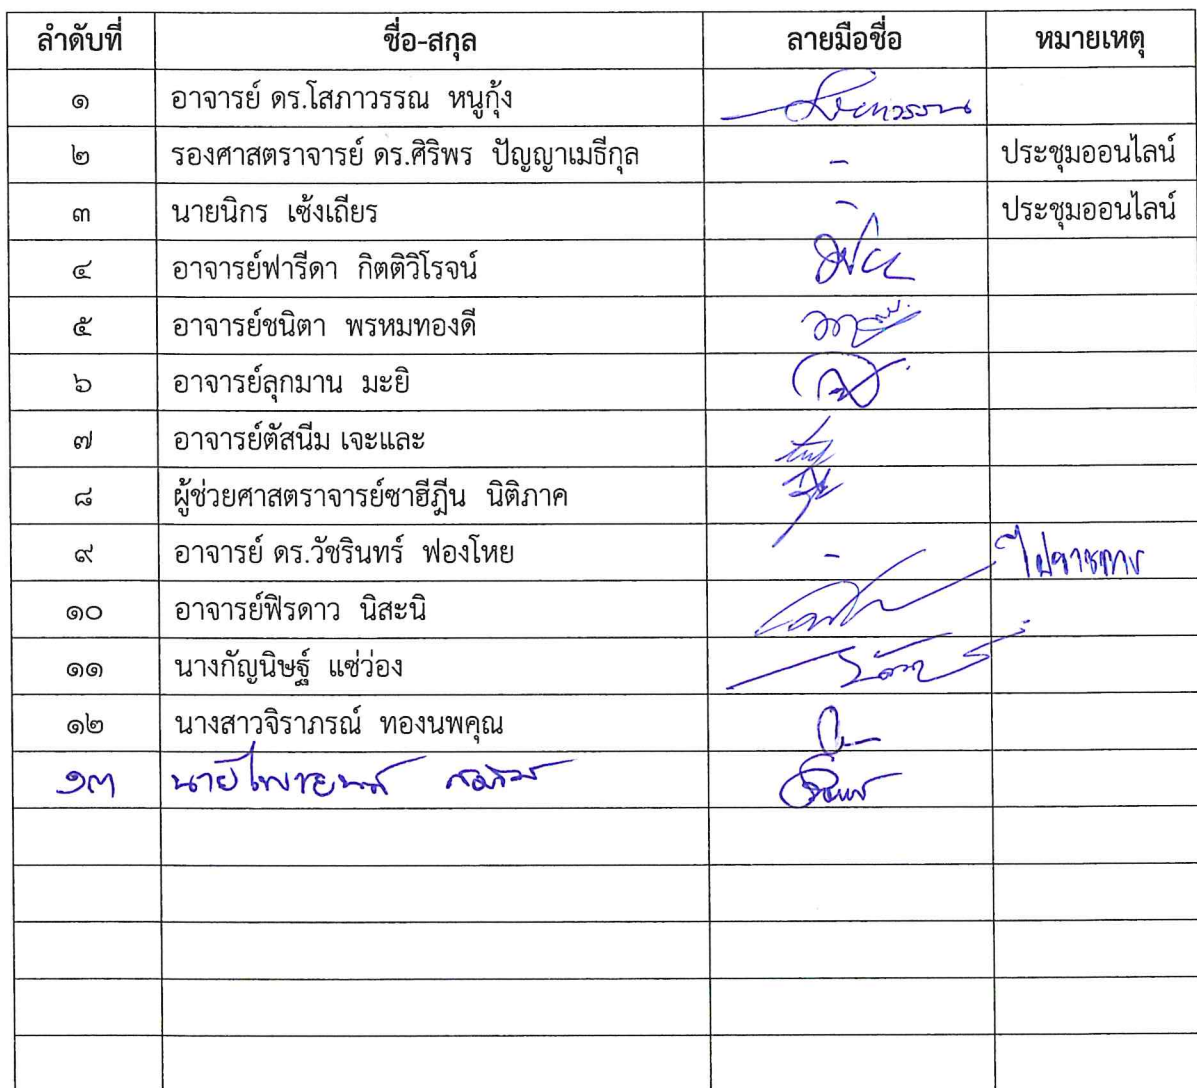 ลำดับที่ ชื่อ-สกุล ลายมือชื่อ หมายเหตุ
๑ อาจารย์ ดร.โสภาวรรณ หนูกุ้ง
๒ รองศาสตราจารย์ ดร.ศิริพร ปัญญาเมธีกุล - ประชุมออนไลน์
๓ นายนิกร เซ้งเถียร - ประชุมออนไลน์
๔ อาจารย์ฟารีดา กิตติวิโรจน์
๕ อาจารย์ชนิตา พรหมทองดี
๖ อาจารย์ลุกมาน มะยิ
๗ อาจารย์ตัสนีม เจะและ
๘ ผู้ช่วยศาสตราจารย์ซาฮีฎีน นิติภาค
๙ อาจารย์ ดร.วัชรินทร์ ฟองโหย - ไปราชการ
๑๐ อาจารย์ฟิรดาว นิสะนิ
๑๑ นางกัญนิษฐ์ แซ่ว่อง
๑๒ นางสาวจิราภรณ์ ทองนพคุณ
๑๓